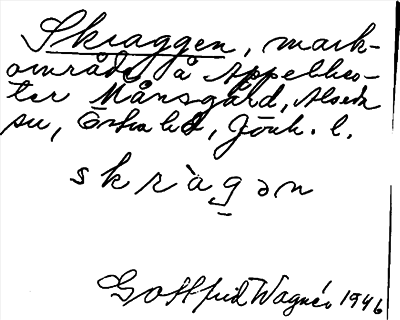 Skraggen, mark-
område å Äppelkco-
ter Månsgård, Alseda
sn, Östra hd, Jönk. l.
skràgən
Gottfrid Wagnér 1946